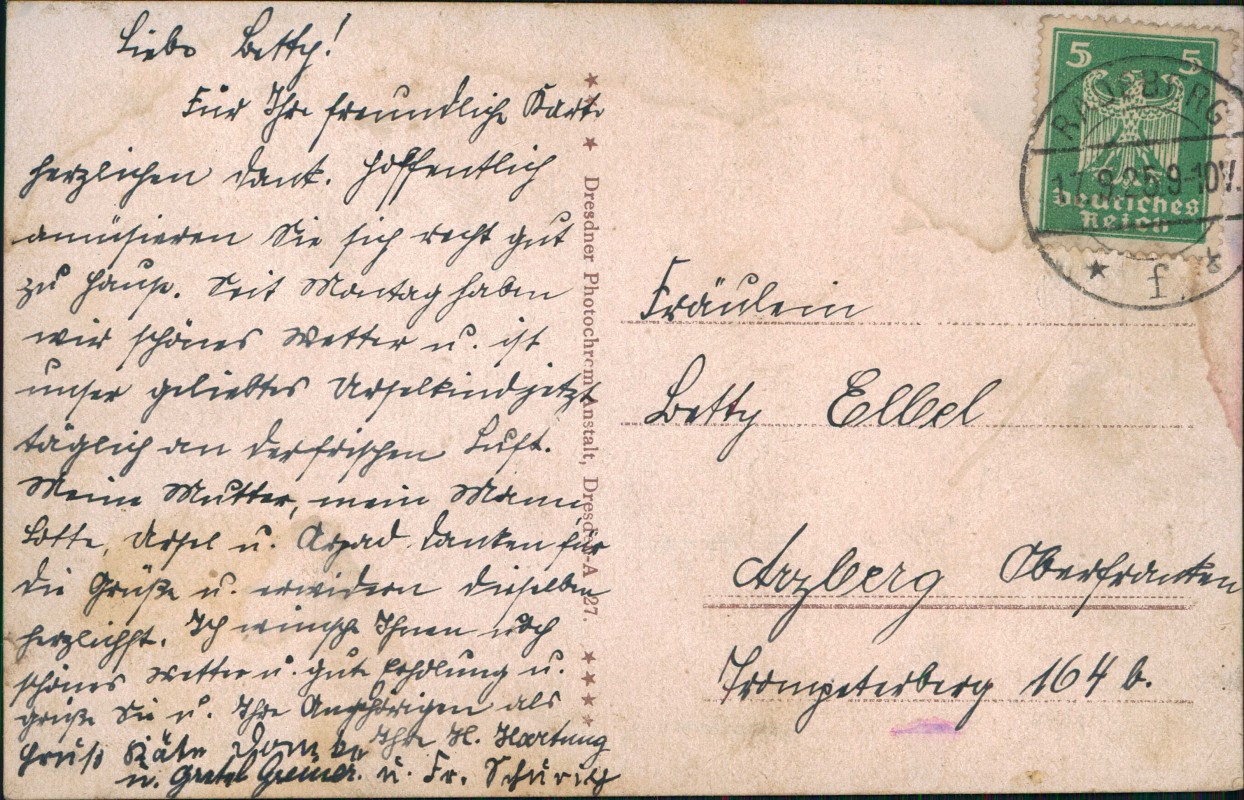 Liebe Betty!
Für Ihre freundliche Karte
herzlichen Dank. Hoffentlich
amüsieren Sie sich recht gut
zu Hause. Seit Montag haben
wir schönes Wetter u. ist
unser geliebtes Urselkind jetzt
täglich an der frischen Luft.
Meine Mutter, mein Mann,
Lotte, Ursel u. Arpad danken für
die Grüße u. erwidern dieselben
herzlichst. Ich wünsche Ihnen noch
schönes Wetter u. gute Erholung u.
grüße Sie u. Ihre Angehörigen als
Ihre H. Hartung
Gruß Käte
u. Gretel Greiner. u. Fr. Schurig
Dresdner Photochrom Anstalt, Dresden-A 27.
5 5
Deutsches
Reich
RADEBERG
17.9.25.9-10V.
f
Fräulein
Betty Elbel
Arzberg Oberfranken
Trompeterberg 164 b.